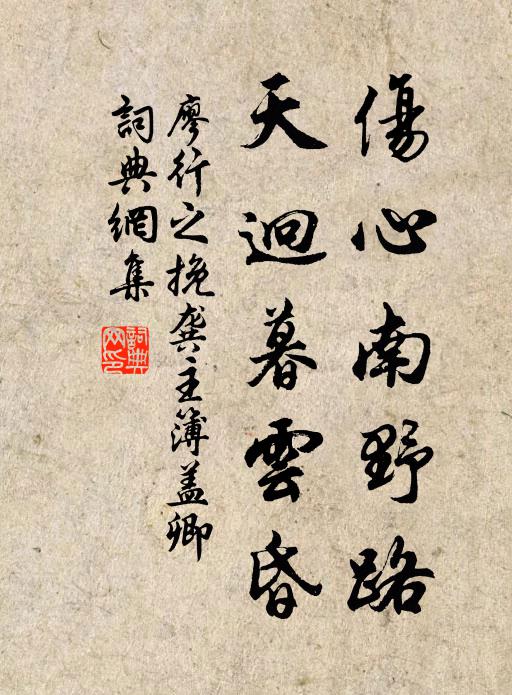 傷心南野路
天迥暮雲昏
廖行之挽龔主簿盖卿
詞典網集
詞典網印